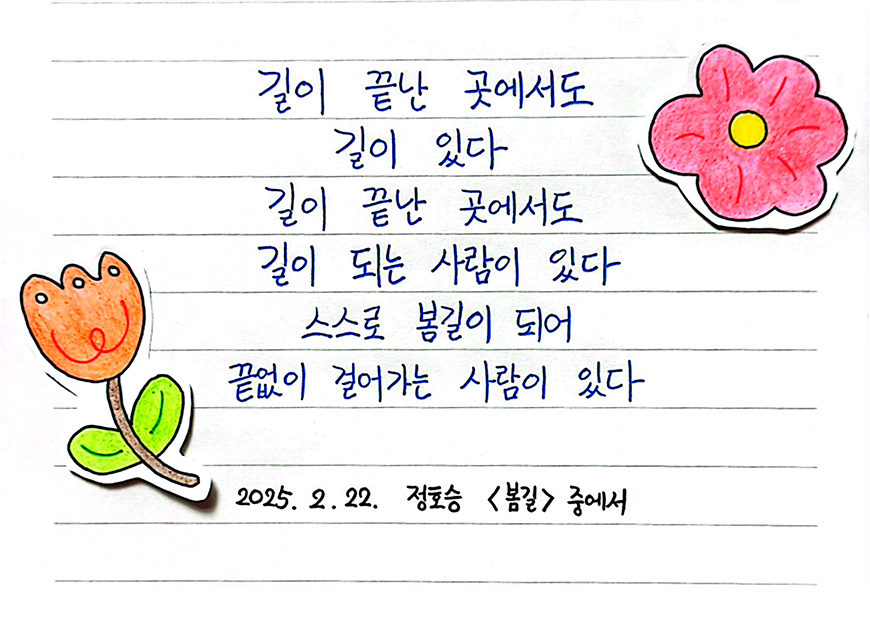 길이 끝난 곳에서도
길이 있다
길이 끝난 곳에서도
길이 되는 사람이 있다
스스로 봄길이 되어
끝없이 걸어가는 사람이 있다
2025. 2. 22. 정호승 <봄길> 중에서